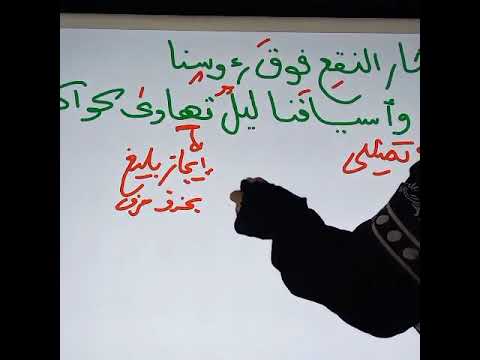 ثار النقع فوق رءوسِنا
وأسيافَنا ليلٌ تهاوى كواك
تمثيلى
إيجاز بليغ
بحذف حرف